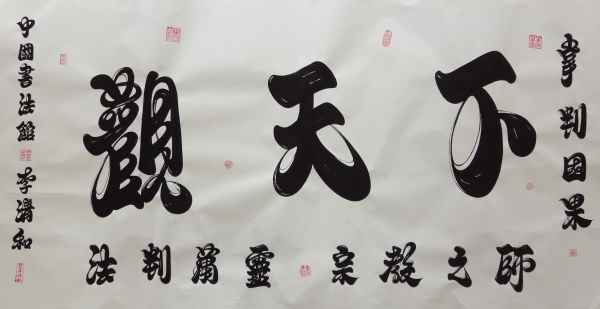 掌判因果
觀天下
法判萬靈 宗教之師
中國書法館 李清和